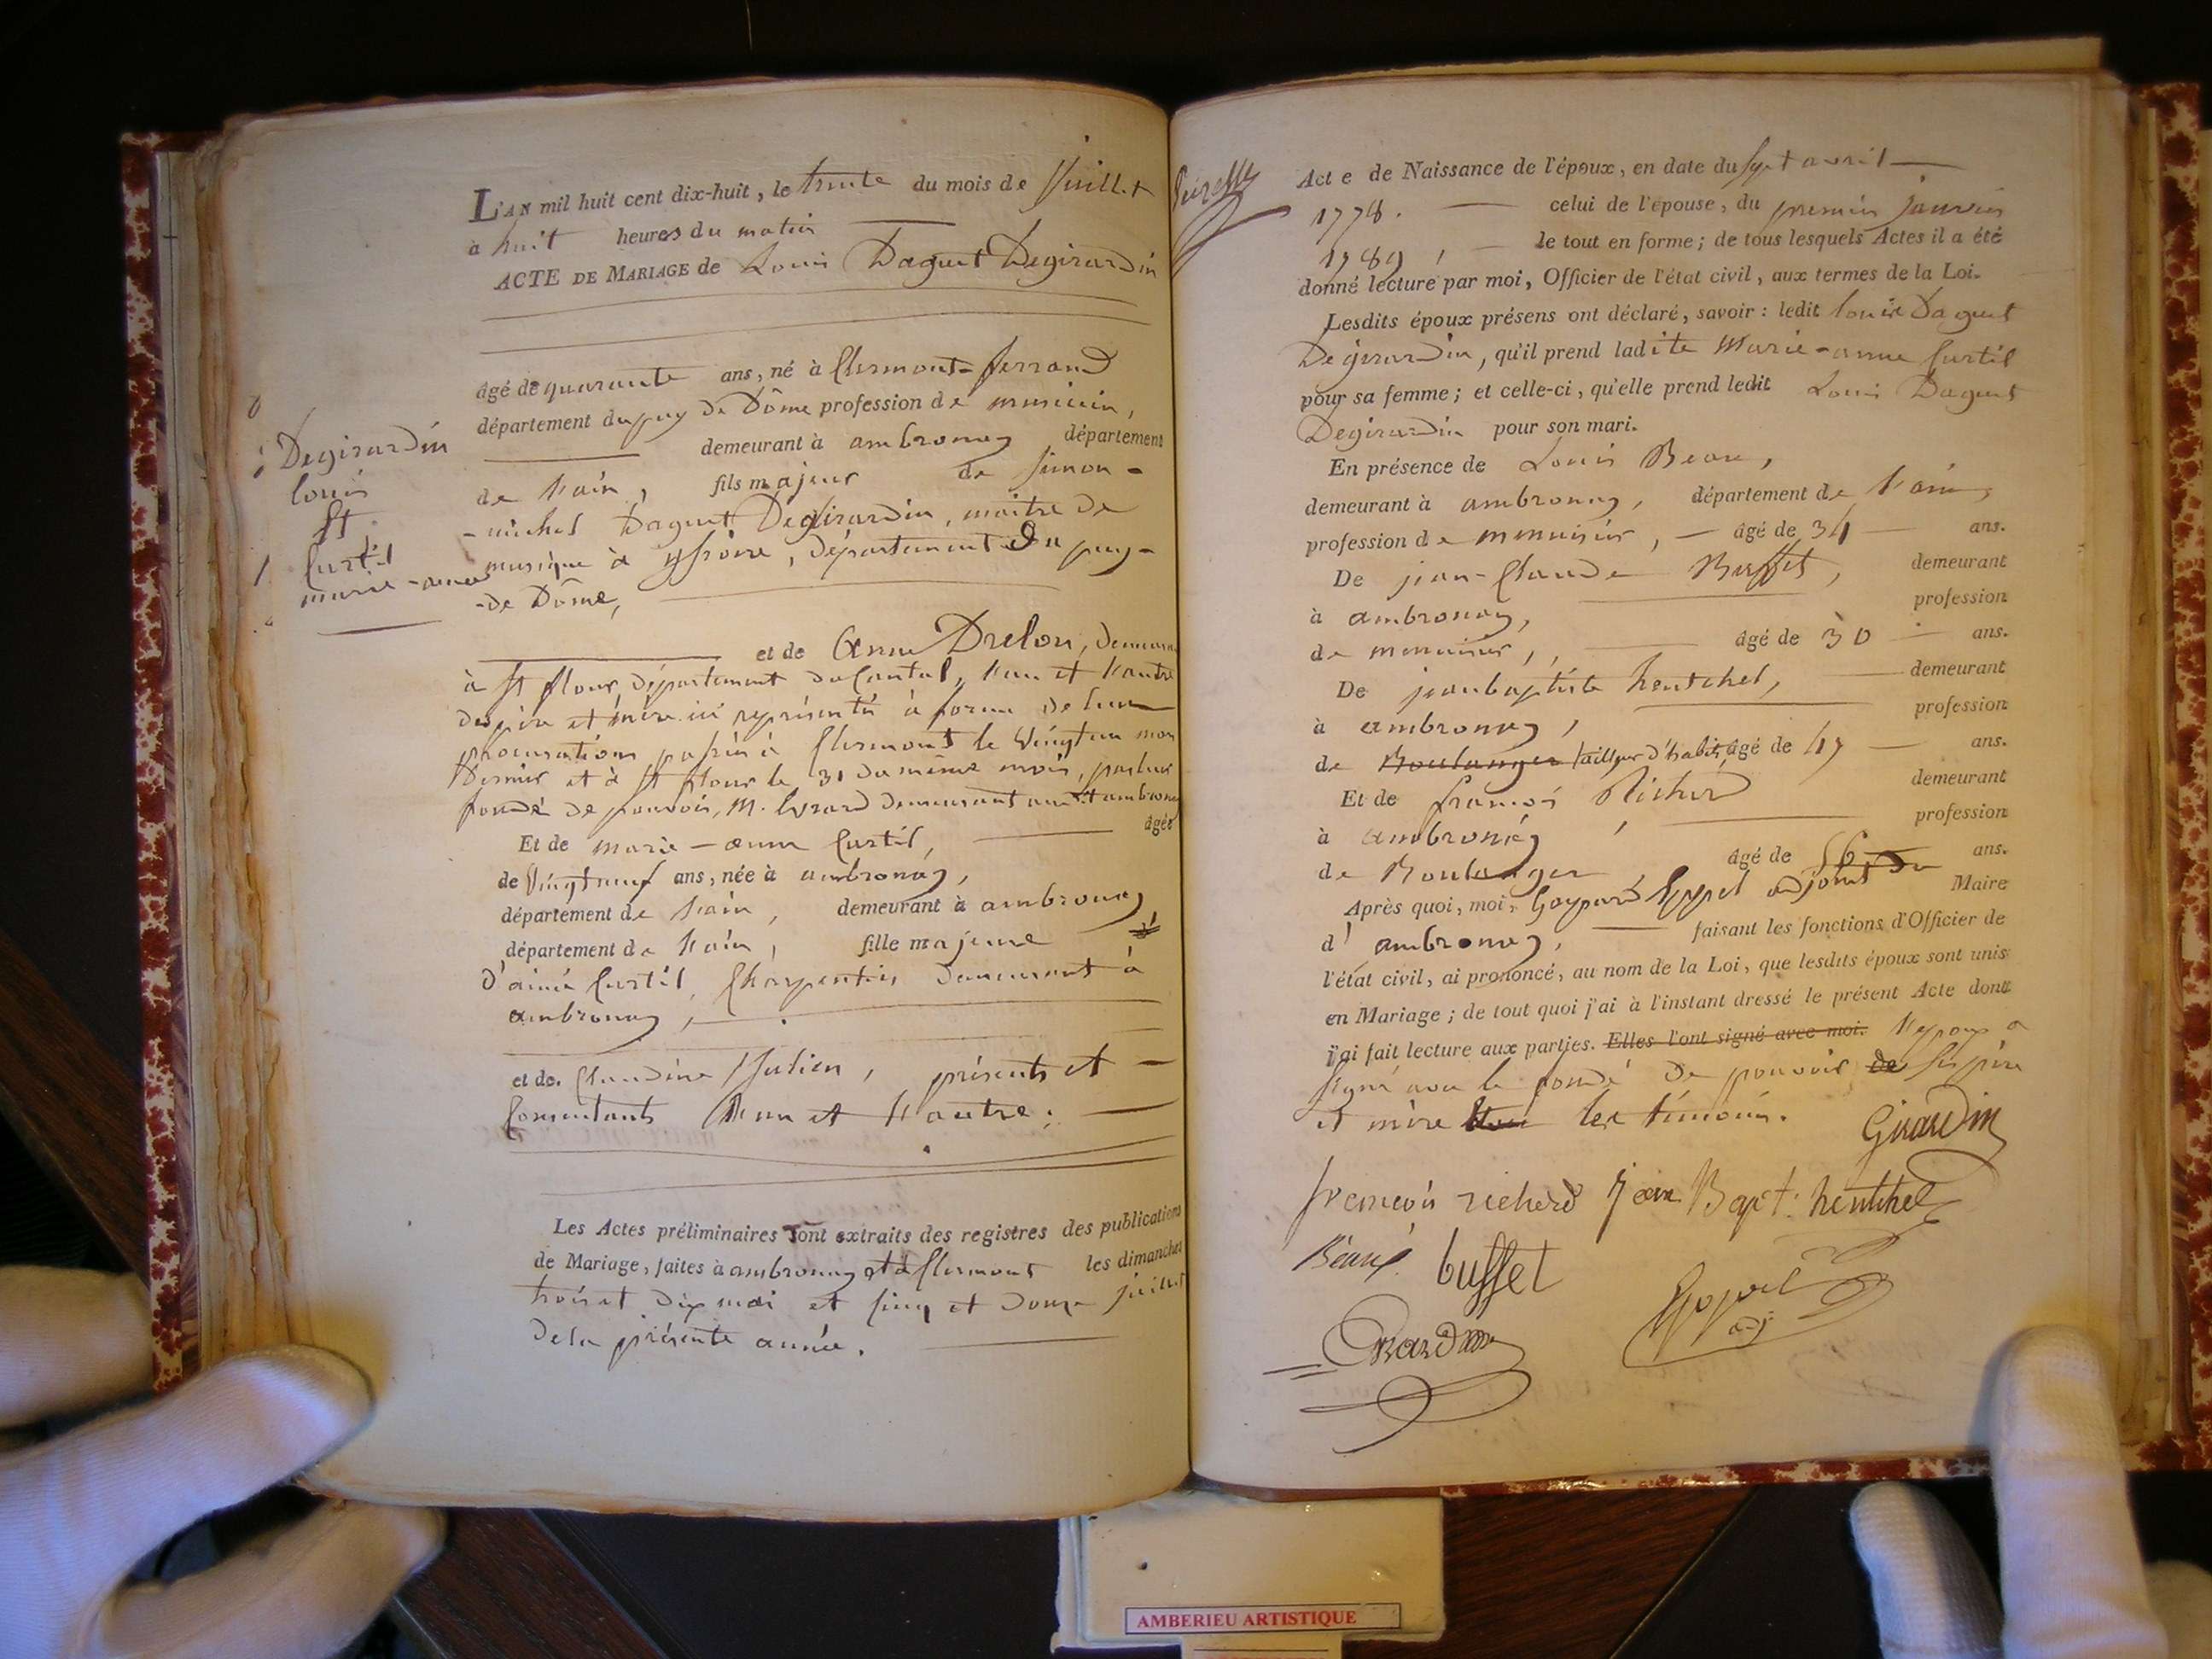 L'AN mil huit cent dix-huit, le trente du mois de Juillet
à huit heures du matin
ACTE DE MARIAGE de Louis Daguet Degirardin
âgé de quarante ans, né à Clermont-ferrand
département du puy de Dôme profession de musicien,
demeurant à ambronay département
de l'ain, fils majeur de simon-
-michel Daguet Degirardin, maitre de
musique à yssoire, département du puy-
-de Dôme,
Degirardin
louis
et
Curtil
marie-anne
et de Anne Drelon, demeurant
à st flour, département du Cantal, l'un et l'autre
des père et mère ici représentés à forme de leurs
procurations passées à Clermont le vingt un mai
dernier et à st flour le 31 du même mois, par leur
fondé de pouvoir, M. demeurant audit ambronay
Et de marie-anne Curtil, âgée
de vingt neuf ans, née à ambronay,
département de l'ain, demeurant à ambronay
département de l'ain, fille majeure
d'aimé Curtil, Charpentier demeurant à
ambronay,
et de Claudine Julien, présents et
Consentants l'un et l'autre.
Les Actes préliminaires sont extraits des registres des publications
de Mariage, faites à ambronay et à Clermont les dimanches
trois et dix mai et cinq et douze juillet
de la présente année.
Acte de Naissance de l'époux, en date du sept avril
1778. celui de l'épouse, du premier janvier
1789, le tout en forme; de tous lesquels Actes il a été
donné lecture par moi, Officier de l'état civil, aux termes de la Loi.
Lesdits époux présens ont déclaré, savoir: ledit louis Daguet
Degirardin, qu'il prend ladite Marie-anne Curtil
pour sa femme; et celle-ci, qu'elle prend ledit Louis Daguet
Degirardin pour son mari.
En présence de Louis Beau,
demeurant à ambronay, département de l'ain,
profession de menuisier, âgé de 34 ans.
De jean-Claude Buffet, demeurant
à ambronay, profession
de menuisier, âgé de 30 ans.
De jeanbaptiste hentchel, demeurant
à ambronay, profession
de Boulanger tailleur d'habits, âgé de 47 ans.
Et de françois Richerd demeurant
à ambronay, profession
de Boulanger, âgé de 56 ans.
Après quoi, moi, Gaspard adjoint du Maire
d'ambronay, faisant les fonctions d'Officier de
l'état civil, ai prononcé, au nom de la Loi, que lesdits époux sont unis
en Mariage; de tout quoi j'ai à l'instant dressé le présent Acte dont
j'ai fait lecture aux parties. Elles l'ont signé avec moi. l'epoux a
signé avec le fondé de pouvoir de ses père
et mère les témoins. Girardin
francois richerd Jean Bapt. hentchel
Beau buffet
adj
AMBERIEU ARTISTIQUE